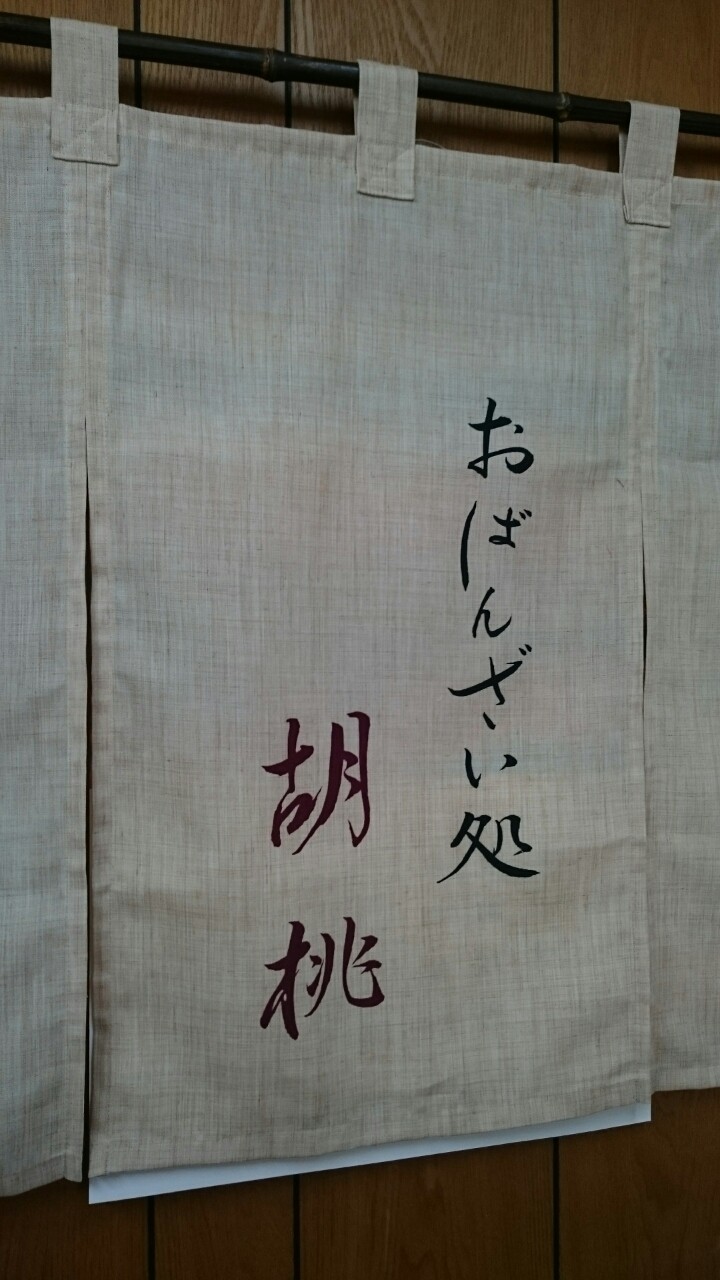 おばんざい処
胡桃